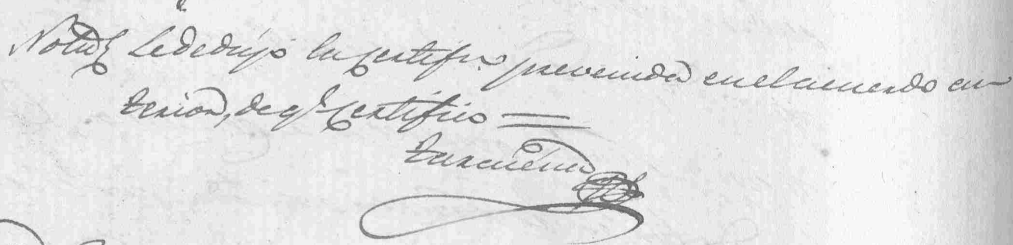 Nota Se dedujo la certific.n prevenida en el acuerdo an-
terior, de q.e certifico =